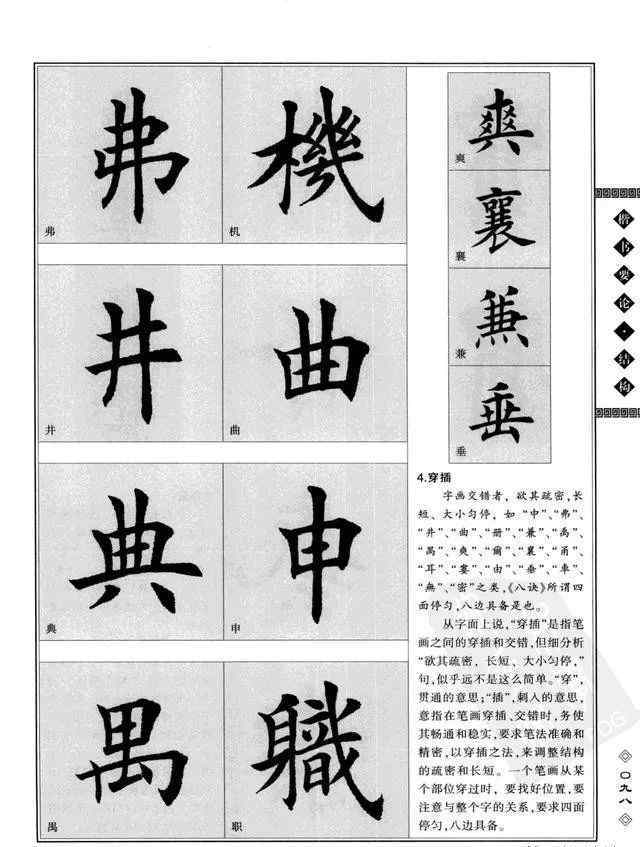 弗
弗
機
机
井
井
曲
曲
典
典
申
申
禺
禺
職
职
爽
爽
襄
襄
兼
兼
垂
垂
4.穿插
字画交错者，欲其疏密,长
短、大小匀停，如“中”、“弗”、
“井”、“曲”、“册”、“兼”、“禹”、
“禺”、“爽”、“爾”、“襄”、“甬”、
“耳”、“婁”、“由”、“垂”、“車”、
“無”、“密”之类，《八诀》所谓四
面停匀，八边具备是也。
从字面上说，“穿插”是指笔
画之间的穿插和交错，但细分析
“欲其疏密、长短、大小匀停，”
句，似乎远不是这么简单。“穿”，
贯通的意思；“插”，刺入的意思，
意指在笔画穿插、交错时，务使
其畅通和稳实，要求笔法准确和
精密，以穿插之法，来调整结构
的疏密和长短。一个笔画从某
个部位穿过时，要找好位置，要
注意与整个字的关系，要求四面
停匀，八边具备。
楷书要论·结构
〇九八